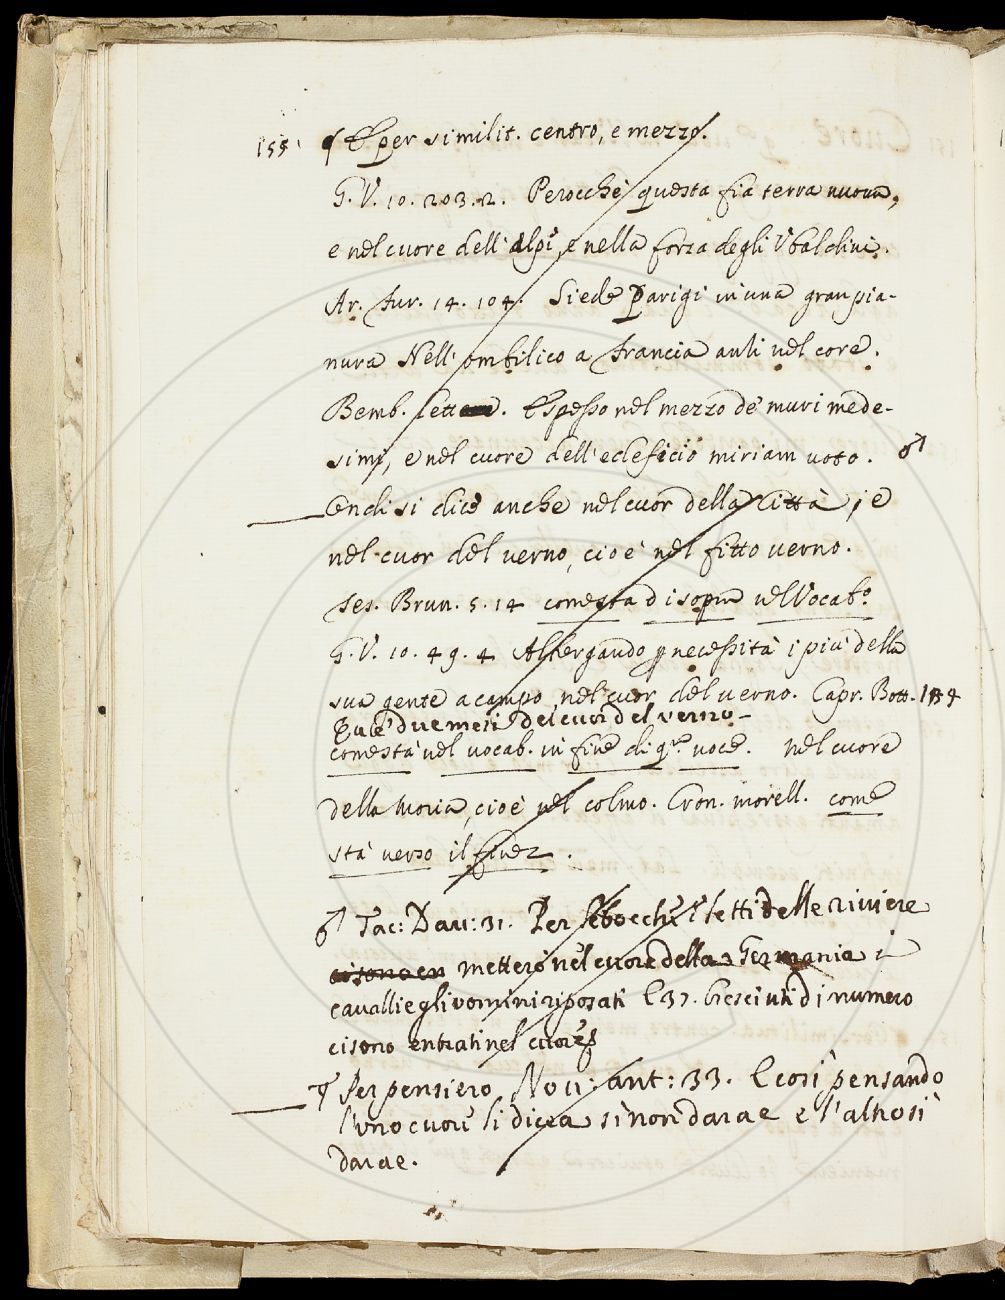 155 ¶ E per similit. centro, e mezzo.
G. V. 10. 203. 2. Perocchè questa fia terra nuova,
e nel cuore dell'alpi, e nella forza degli Ubaldini.
Ar. Fur. 14. 104. Siede Parigi in una gran pia-
nura Nell'ombilico a Francia anzi nel core.
Bemb. lett. E spesso nel mezzo de' muri mede-
simi, e nel cuore dell'edeficio miriam voto. ♂
Ondi si dice anche nel cuor della Città, e
nel cuor del verno, cioè nel fitto verno.
Tes. Brun. 5. 14 come sta di sopra nel Vocabo.
G. V. 10. 49. 4 Albergando p necessità i più della
sua gente a campo nel cuor del verno. Capr. Bott. 154
due mesi del cuor del verno -
come sta nel vocab. in fine di qta voce. Nel cuore
della Moria, cioè nel colmo. Cron. morell. come
stà verso il fine.
♂ Tac: Dav: 31. Per le bocche e letti delle riviere
metterò nel cuore della Germania i
cavalli e gli uomini riposati E 37. Cresciuti di numero
ci sono entrati nel cuore
Per pensiero, Nov: ant: 33. E così pensando
l'uno cuore li dicea si non darae e l'altro si
darae.